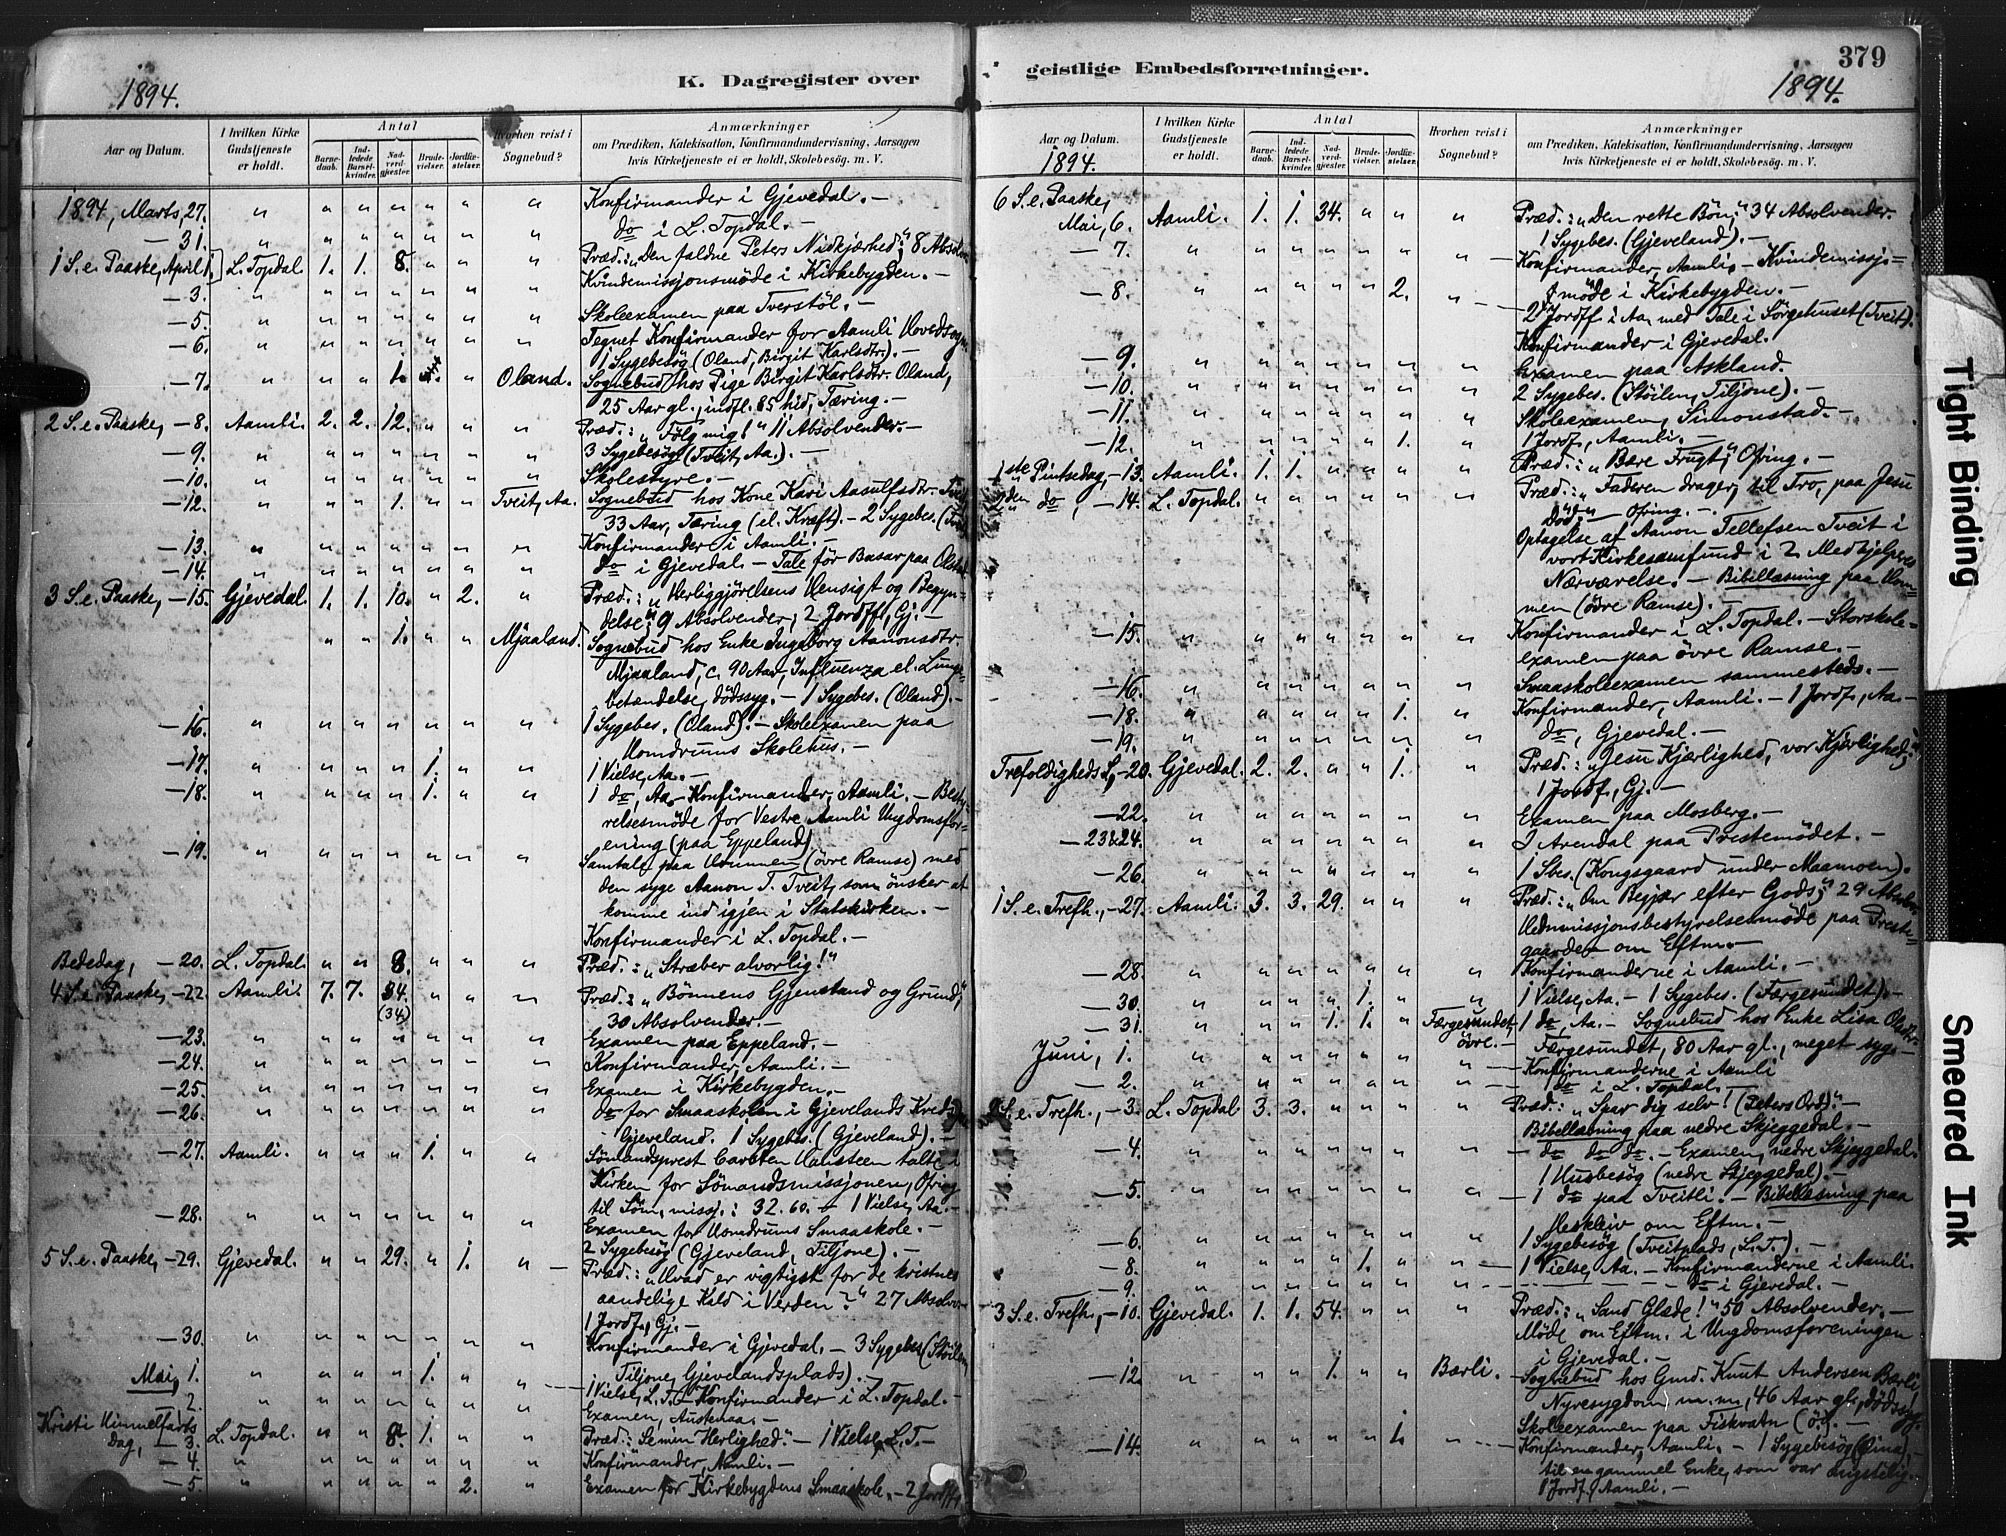 1894.
K. Dagregister over
Aar og Datum.
I hvilken Kirke Gudstjeneste er holdt.
Antal
Barnedaab.
Indledede Barselkvinder.
Nadverdgjæster.
Brudevielser.
Jordfæstelser.
Hvorhen reist i Sognebud?
Anmærkninger
om Prædiken, Katekisation, Konfirmandundervisning, Aarsagen
hvis Kirketjeneste ei er holdt, Skolebesøg. m. V.
1894, Marts, 27. " " " " " " " Konfirmander i Gjevedal. —
— 31. " " " " " " " do i L. Topdal. —
1 S. e. Paaske, April 1. L. Topdal 1. 1. 8. " " " Præd.: „Den faldne Peters Nidkjærhed;" 8 Absolv.
— 3. " " " " " " " Kvindemissjonsmöde i Kirkebygden. —
— 5. " " " " " " " Skoleexamen paa Tverstöl. —
— 6. " " " " " " " Tegnet Konfirmander for Aamli Hovedsogn
1 Sygebesög (Oland, Birgit Karlsdtr.). —
— 7. " " " 1. " " Oland. Sognebud hos Pige Birgit Karlsdtr. Oland,
25 Aar gl., indfl. 85 hid, Tæring. —
2 S. e. Paaske, — 8. Aamli. 2. 2. 12. " " " Præd.: „Fölg mig!" 11 Absolvender. —
— 9. " " " " " " " 3 Sygebesög (Tveit, Aa.). —
— 10. " " " " " " " Skolestyre. —
— 12. " " " 1. " " Tveit, Aa. Sognebud hos Kone Kari Aasulfsdtr. Tveit
33 Aar, Tæring (el. Kræft). — 2 Sygebes.
— 13. " " " " " " " Konfirmander i Aamli. —
— 14. " " " " " " " do i Gjevedal. — Tale for Basar paa
3 S. e. Paaske, — 15. Gjevedal. 1. 1. 10. " 2. " Præd.: „Herliggjörelsens Hensigt og Begyn-
delse;" 9 Absolvender; 2 Jordff., Gj. —
" " 1. " " Mjaaland. Sognebud hos Enke Ingeborg Aanonsdtr.
Mjaaland, c. 90 Aar, Influenza el. Lunge-
betændelse, dödssyg. — 1 Sygebes. (Oland). —
— 16. " " " " " " " 1 Sygebes. (Oland). — Skoleexamen paa
Homdrums Skolehus. —
— 17. " " " " 1. " " 1 Vielse, Aa. —
— 18. " " " " 1. " " 1 do, Aa. — Konfirmander, Aamli. — Besty-
relsesmöde for Vestre Aamli Ungdomsfor-
ening (paa Eppeland)
— 19. " " " " " " " Samtale paa Hommen (övre Ramse) med
den syge Aanon T. Tveit, som önsker at
komme ind igjen i Statskirken. —
Konfirmander i L. Topdal. —
Bededag, — 20. L. Topdal. " " 8. " " " Præd.: „Stræber alvorlig!"
4 S. e. Paaske, — 22. Aamli. 7. 7. 34. " " " Præd.: „Bönnens Gjenstand og Grund;"
(34) 30 Absolvender. —
— 23. " " " " " " " Examen paa Eppeland. —
— 24. " " " " " " " Konfirmander, Aamli. —
— 25. " " " " " " " Examen i Kirkebygden. —
— 26. " " " " " " " do for Smaaskolen i Gjevelands Kreds,
Gjeveland. 1 Sygebes. (Gjeveland). —
— 27. Aamli. " " " 1. " " Sömandsprest Carsten Hansteen talte i
Kirken for Sömandsmissjonen, Ofring
til Söm. missj.: 32.60. — 1 Vielse, Aa. —
— 28. " " " " " " " Examen for Homdrums Smaaskole. —
2 Sygebesög (Gjeveland, Tiljone). —
5 S. e. Paaske, — 29. Gjevedal. " " 29. " 1. " Præd.: „Hvad er vigtigst for de kristnes
aandelige Kald i Verden?" 27 Absolv.
1 Jordf., Gj. —
— 30. " " " " " " " Konfirmander i Gjevedal. — 3 Sygebes. (Stöilen,
Tiljone, Gjevelandsplads). —
Mai, 1. " " " " 1. " " 1 Vielse, L. T. — Konfirmander i L. Topdal. —
— 2. " " " " " " " Examen, Austenaa. —
Kristi Himmelfarts
Dag, — 3. L. Topdal. " " 8. 1. " " Præd.: Se min Herlighed". — 1 Vielse, L. T. —
— 4. " " " " " " " Konfirmander, Aamli. —
— 5. " " " " " 2. " Examen for Kirkebygdens Smaaskole. — 2 Jordff.
379
geistlige Embedsforretninger.
1894.
Aar og Datum.
1894.
I hvilken Kirke Gudstjeneste er holdt.
Antal
Barnedaab.
Indledede Barselkvinder.
Nadverdgjæster.
Brudevielser.
Jordfæstelser.
Hvorhen reist i Sognebud?
Anmærkninger
om Prædiken, Katekisation, Konfirmandundervisning, Aarsagen
hvis Kirketjeneste ei er holdt, Skolebesøg. m. V.
6 S. e. Paaske,
Mai, 6. Aamli. 1. 1. 34. " " " Præd.: „Den rette Bön;" 34 Absolvender.
1 Sygebes. (Gjeveland). —
— 7. " " " " " " " Konfirmander, Aamli. — Kvindemissjons-
möde i Kirkebygden. —
— 8. " " " " " 2. " 2 Jordff. i Aa. med Tale i Sörgehuset (Tveit).
Konfirmander i Gjevedal.
— 9. " " " " " " " Examen paa Askland.
— 10. " " " " " " " 2 Sygebes. (Stöilen, Tiljone). —
— 11. " " " " " " " Skoleexamen, Simonstad. —
— 12. " " " " " 1. " 1 Jordf., Aamli. —
1ste Pintsedag, — 13. Aamli. 1. 1. " " " " Præd.: „Bære Frugt;" Ofring. —
2den do, — 14. L. Topdal. " " " " " " Præd.: „Faderen drager til Tro, paa Jesu
Död;" Ofring. —
Optagelse af Aanon Tellefsen Tveit i
vort Kirkesamfund i 2 Medhjelperes
Nærværelse. — Bibellæsning paa Hom-
men (övre Ramse). —
— 15. " " " " " " " Konfirmander i L. Topdal. — Storskole-
examen paa övre Ramse. —
— 16. " " " " " " " Smaaskoleexamen sammesteds. —
— 18. " " " " " 1. " Konfirmander, Aamli. — 1 Jordf., Aa. —
— 19. " " " " " " " do, Gjevedal. —
Trefoldigheds S., — 20. Gjevedal. 2. 2. " " 1. " Præd.: „Jesu Kjærlighed, vor Kjærlighed;"
1 Jordf., Gj. —
— 22. " " " " " " " Examen paa Mosberg. —
— 23 & 24. " " " " " " " I Arendal paa Prestemödet. —
— 26. " " " " " " " 1 Sbes. (Kongsgaard under Maamoen). —
1 S. e. Trefh., — 27. Aamli. 3. 3. 29. " " " Præd.: „Om Begjær efter Gods;" 29 Absolv.
Hedmissjonsbestyrelsesmöde paa Preste-
gaarden om Eftm. —
— 28. " " " " " " " Konfirmanderne i Aamli. —
— 30. " " " " 1. " " 1 Vielse, Aa. — 1 Sygebes. (Færgesundet). —
— 31. " " " 1. 1. " Færgesundet, övre. — 1 do, Aa. — Sognebud hos Enke Lisa
Færgesundet, 80 Aar gl., meget syg. —
Juni, 1. " " " " " " " Konfirmanderne i Aamli
— 2. " " " " " " " do i L. Topdal. —
2 S. e. Trefh., — 3. L. Topdal 3. 3. " " " " Præd.: „Spar dig selv! (Peters Ord)." —
Bibellæsning paa nedre Skjeggedal. —
— 4. " " " " " " " do do do. — Examen, nedre Skjeggedal.
1 Husbesög (nedre Skjeggedal). —
— 5. " " " " " " " 1 do paa Tveitli. — Bibellæsning paa
Heskleiv om Eftm. —
— 6. " " " " " " " 1 Sygebesög (Tveitplads, L. T.). —
— 8. " " " " 1. " " 1 Vielse, Aa. — Konfirmanderne i Aamli.
— 9. " " " " " " " do i Gjevedal. —
3 S. e. Trefh., — 10. Gjevedal. 1. 1. 54. " " " Præd.: „Sand Glæde!" 50 Absolvender. —
Möde om Eftm. i Ungdomsforeningen
i Gjevedal. —
— 12. " " " 1. " " Bærli. — Sognebud hos Gmd. Knut Andersen Bærli,
Nyresygdom m. m., 46 Aar gl., dödssyg.
Skoleexamen paa Fiskvatn (ö.). —
— 14. " " " " " 1. " Konfirmander, Aamli. — 1 Sygebesög
til en gammel Enke, som var ængstelig. —
1 Jordf., Aamli. —
Tight Binding
Smeared Ink